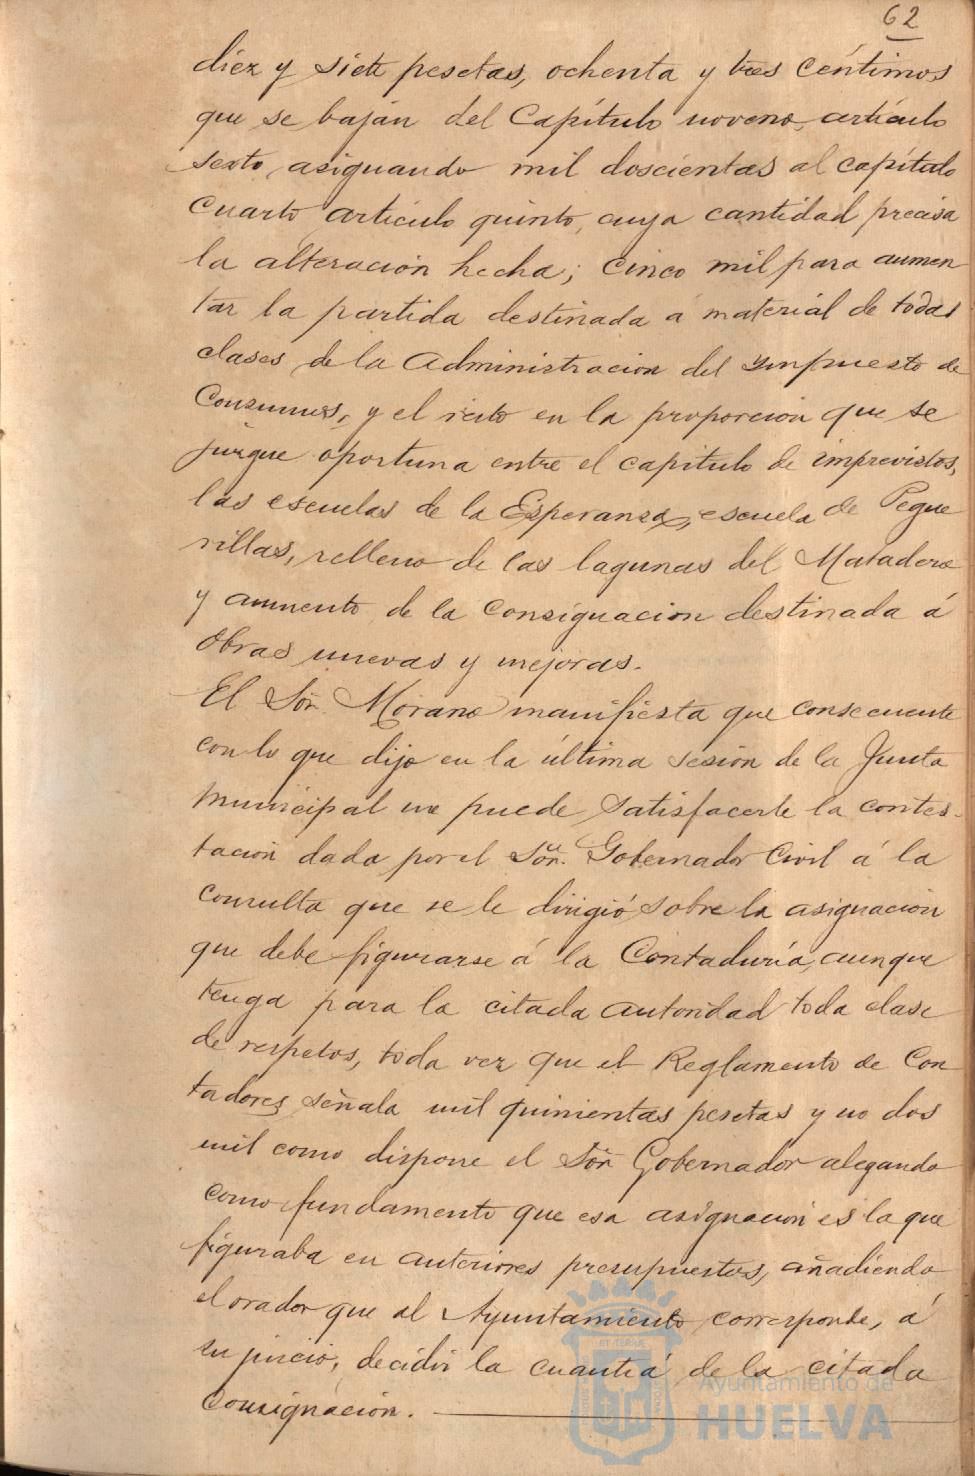 62
diez y siete pesetas, ochenta y tres céntimos
que se bajan del Capítulo noveno, artículo
sexto, asignando mil doscientas al capítulo
cuarto artículo quinto, cuya cantidad precisa
la alteración hecha; cinco mil para aumen
tar la partida destinada á material de todas
clases de la Administracion del Ympuesto de
Consumos, y el resto en la proporcion que se
juzgue oportuna entre el capitulo de imprevistos,
las escuelas de la Esperanza, escuela de Pegue
rillas, relleno de las lagunas del Matadero
y aumento de la consignacion destinada á
Obras nuevas y mejoras.
El Sor. Morano manifiesta que consecuente
con lo que dijo en la última sesión de la Junta
Municipal no puede satisfacerle la contes-
tación dada por el Sor. Gobernador Civil á la
consulta que se le dirigió sobre la asignación
que debe figurarse á la Contaduría, aunque
tenga para la citada autoridad toda clase
de respetos, toda vez que el Reglamento de Con
tadores señala mil quinientas pesetas y no dos
mil como dispone el Sor. Gobernador alegando
como fundamento que esa asignación es la que
figuraba en anteriores presupuestos, añadiendo
el orador que al Ayuntamiento corresponde, á
su juicio, decidir la cuantía de la citada
consignación.
Ayuntamiento de
HUELVA